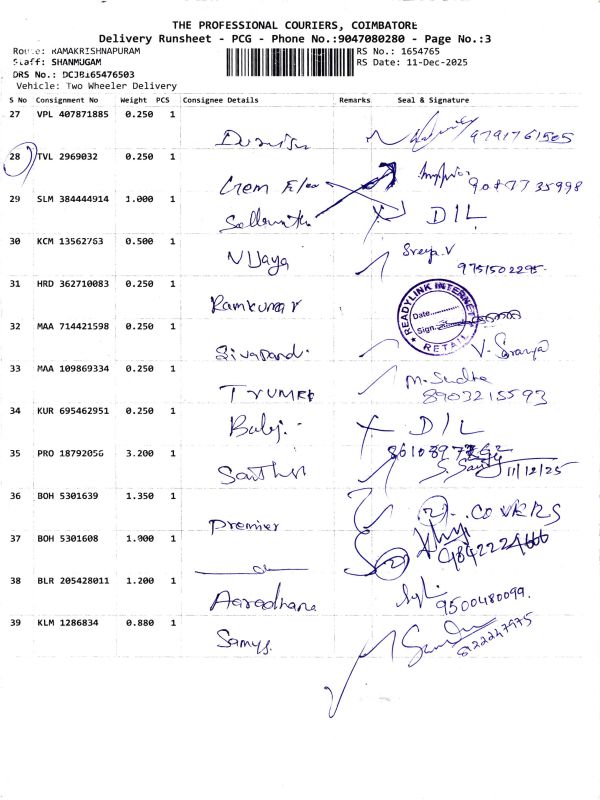 THE PROFESSIONAL COURIERS, COIMBATORE
Delivery Runsheet - PCG - Phone No.:9047080280 - Page No.:3
Route: RAMAKRISHNAPURAM RS No.: 1654765
Staff: SHANMUGAM RS Date: 11-Dec-2025
DRS No.: DCJB165476503
Vehicle: Two Wheeler Delivery
S No Consignment No Weight PCS Consignee Details Remarks Seal & Signature
27 VPL 407871885 0.250 1
9791761505
28 TVL 2969032 0.250 1
Gem
29 SLM 384444914 1.000 1
D/L
30 KCM 13562763 0.500 1
Vijaya Sreeja.V
9751502295
31 HRD 362710083 0.250 1
Ramkumar
READYLINK INTERNET
Date
Sign.
RETAIL
32 MAA 714421598 0.250 1
V. Saranya
33 MAA 109869334 0.250 1
M. Sudha
8903215593
34 KUR 695462951 0.250 1
Balaji. D/L
35 PRO 18792056 3.200 1
11/12/25
36 BOH 5301639 1.350 1
Premier
37 BOH 5301608 1.900 1
38 BLR 205428011 1.200 1
Aaradhana 9500480099.
39 KLM 1286834 0.880 1
Samys.
8122247975